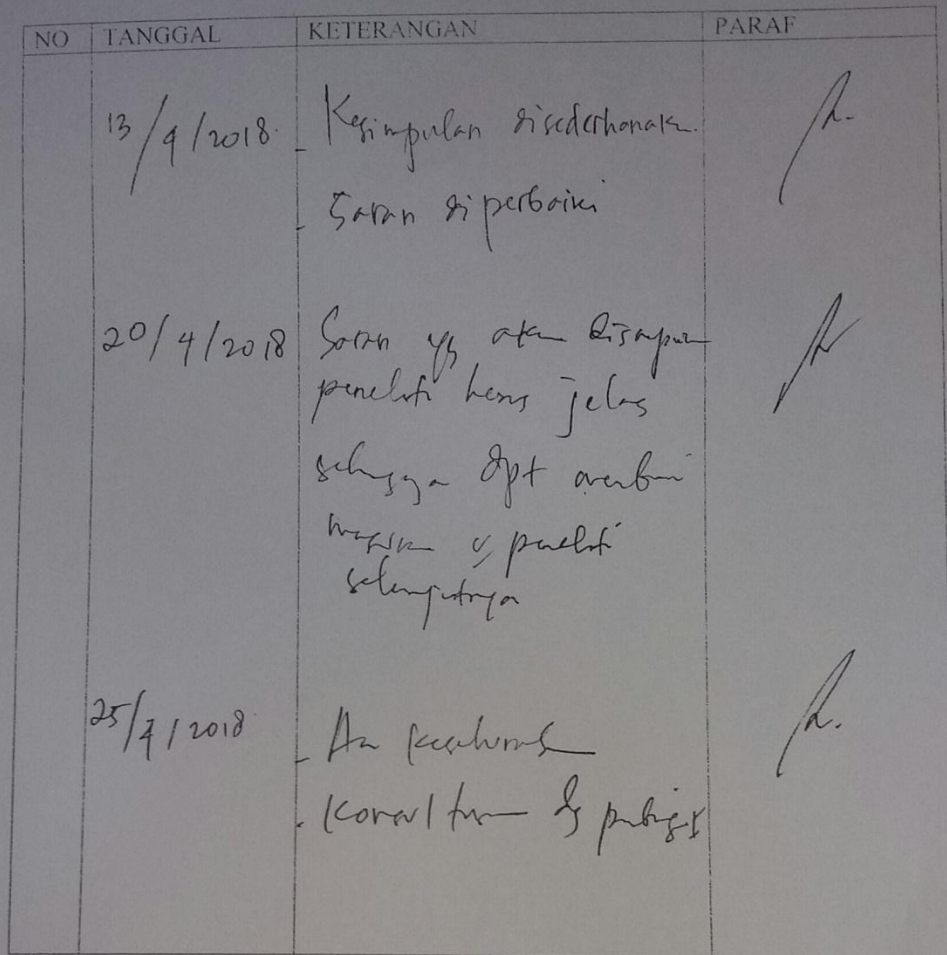 NO TANGGAL KETERANGAN PARAF
13/4/2018 - Kesimpulan disederhanakan.
- Saran diperbaiki
20/4/2018 Saran yg akan
peneliti harus jelas
sehingga dpt
peneliti
selanjutnya
25/4/2018 - Acc keseluruhan
- Konsul dg